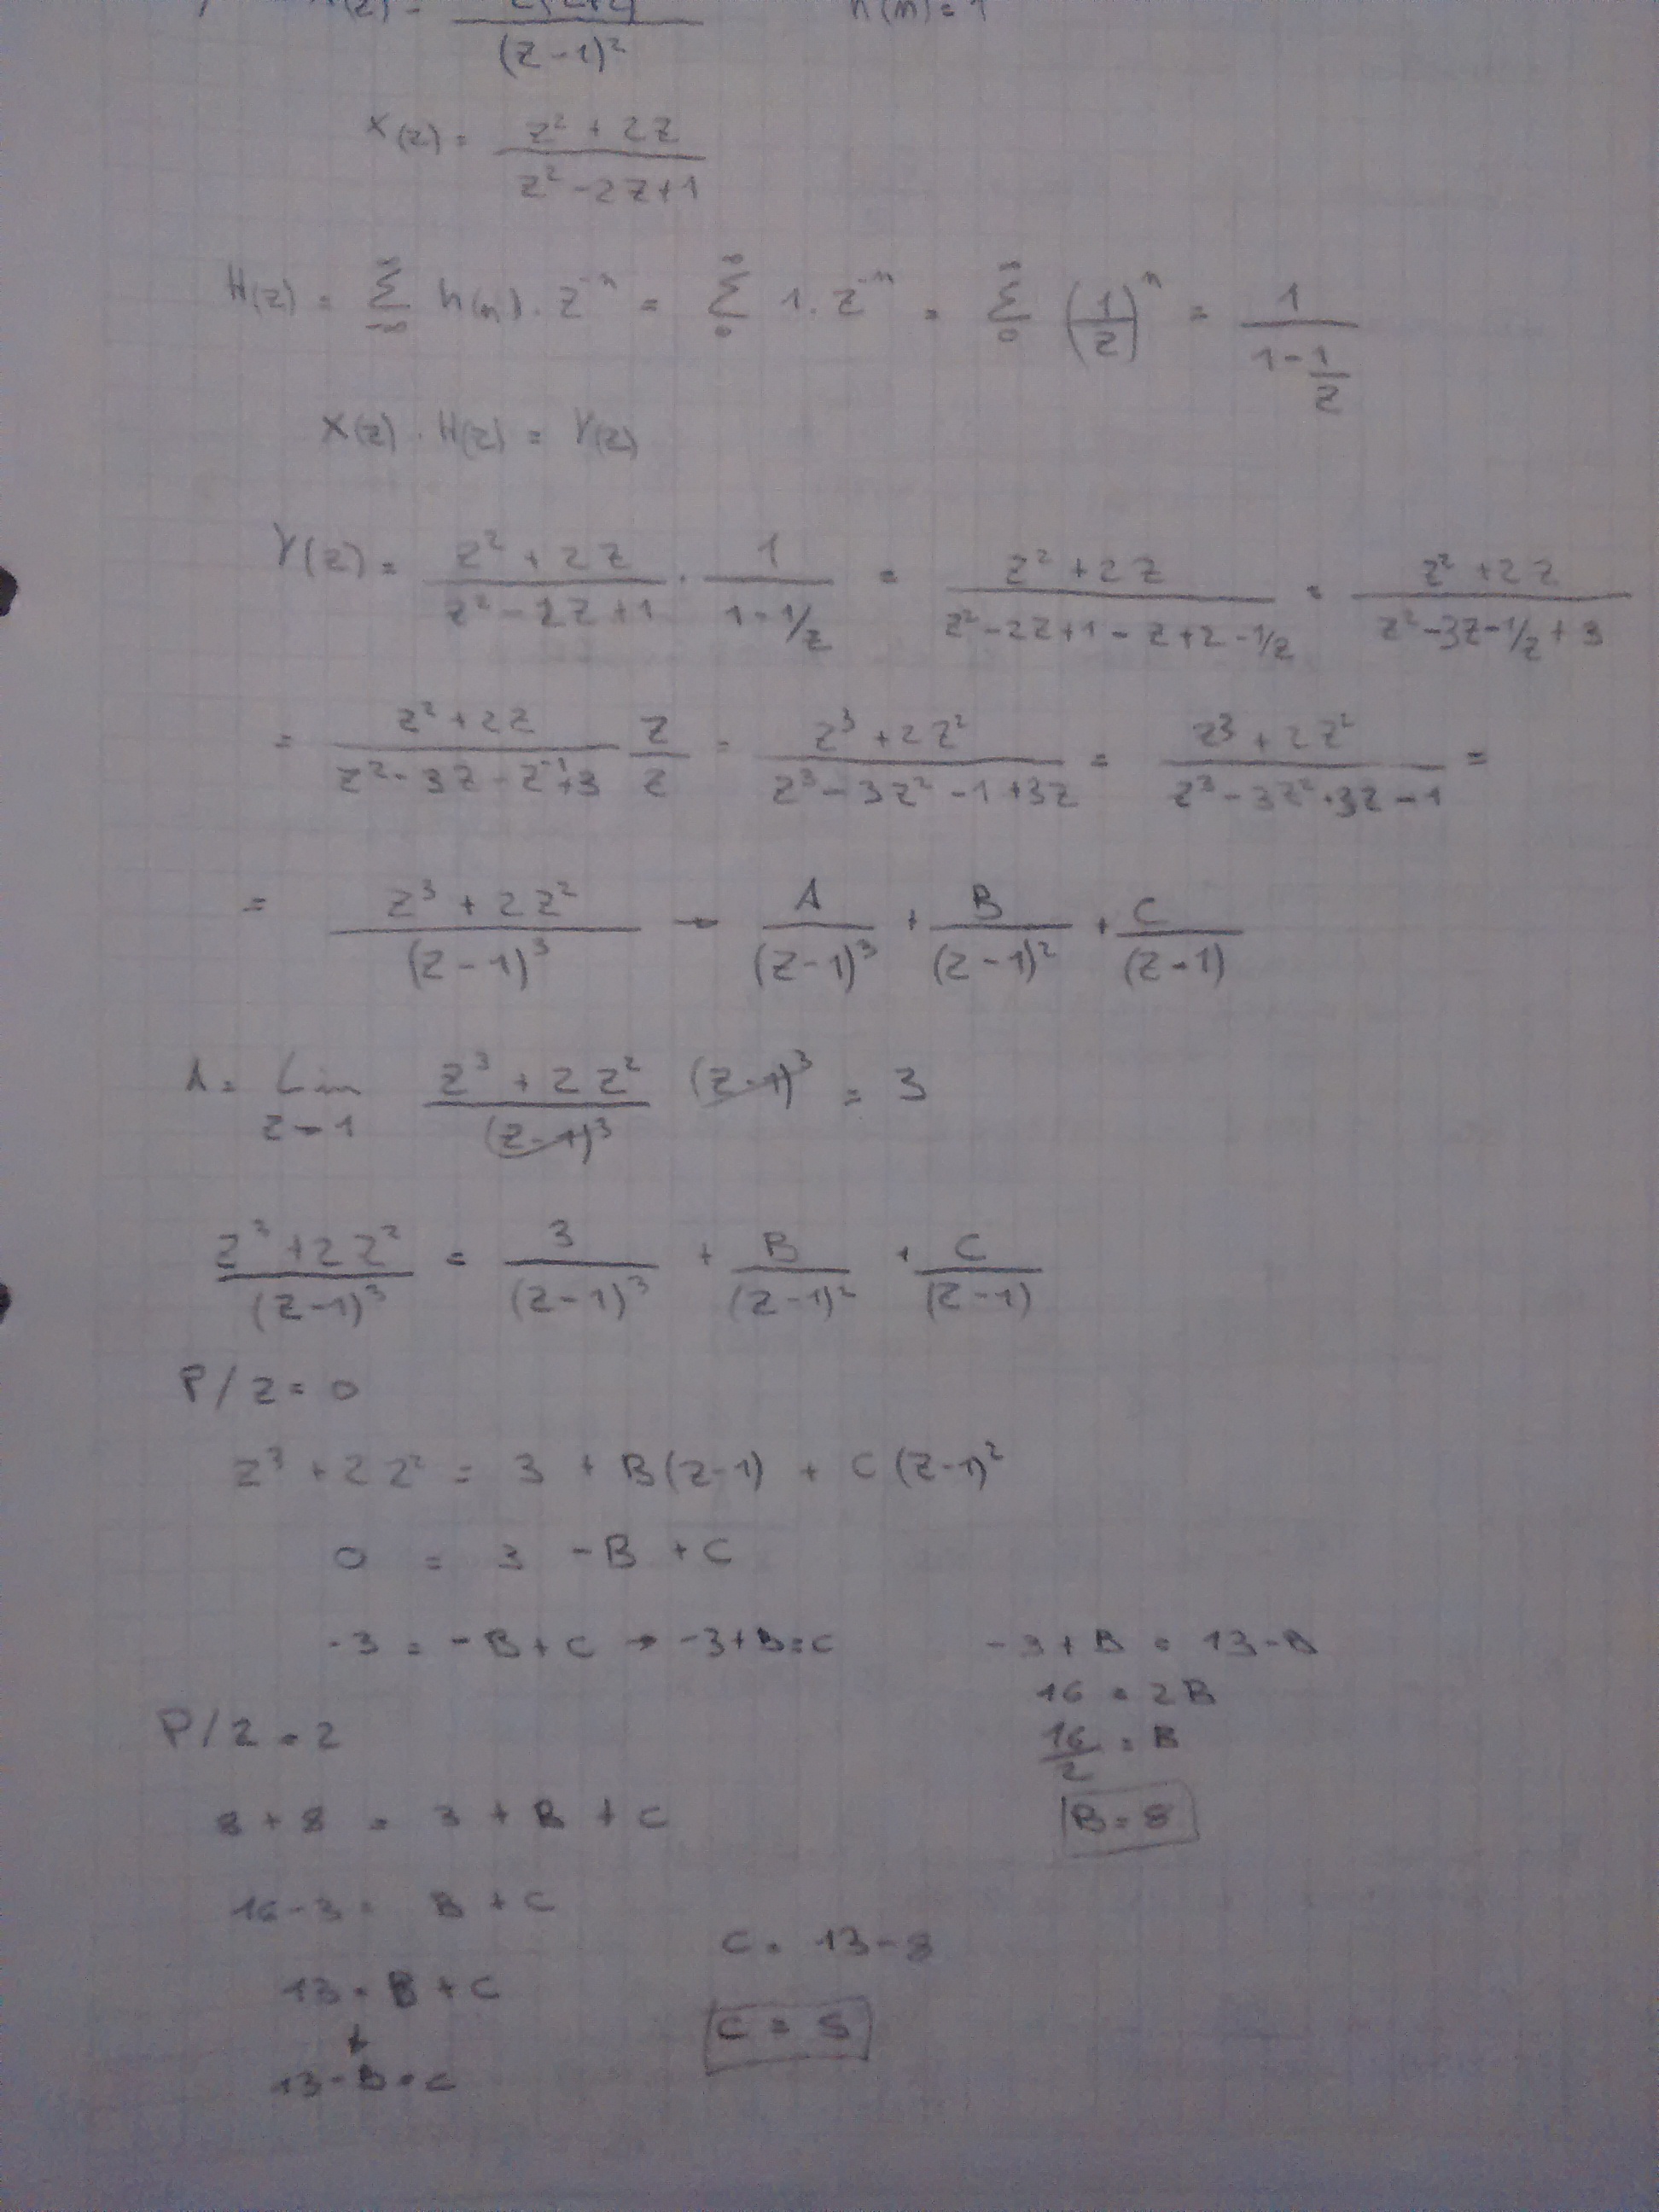 (z-1)² h(n) = 1
X(z) = z² + 2z / z² - 2z + 1
H(z) = Σ_{-∞}^{∞} h(n) · z^{-n} = Σ_{0}^{∞} 1 · z^{-n} = Σ_{0}^{∞} (1/z)^n = 1 / 1 - 1/z
X(z) · H(z) = Y(z)
Y(z) = z² + 2z / z² - 2z + 1 · 1 / 1 - 1/z = z² + 2z / z² - 2z + 1 - z + 2 - 1/z = z² + 2z / z² - 3z - 1/z + 3
= z² + 2z / z² - 3z - z^{-1} + 3 z / z = z³ + 2z² / z³ - 3z² - 1 + 3z = z³ + 2z² / z³ - 3z² + 3z - 1 =
= z³ + 2z² / (z-1)³ → A / (z-1)³ + B / (z-1)² + C / (z-1)
A = Lim z→1 z³ + 2z² / (z-1)³ (z-1)³ = 3
z³ + 2z² / (z-1)³ = 3 / (z-1)³ + B / (z-1)² + C / (z-1)
P/ z = 0
z³ + 2z² = 3 + B(z-1) + C(z-1)²
0 = 3 - B + C
-3 = -B + C → -3 + B = C
-3 + B = 13 - B
16 = 2B
16/2 = B
B = 8
P/ z = 2
8 + 8 = 3 + B + C
16 - 3 = B + C
13 = B + C
13 - B = C
C = 13 - 8
C = 5